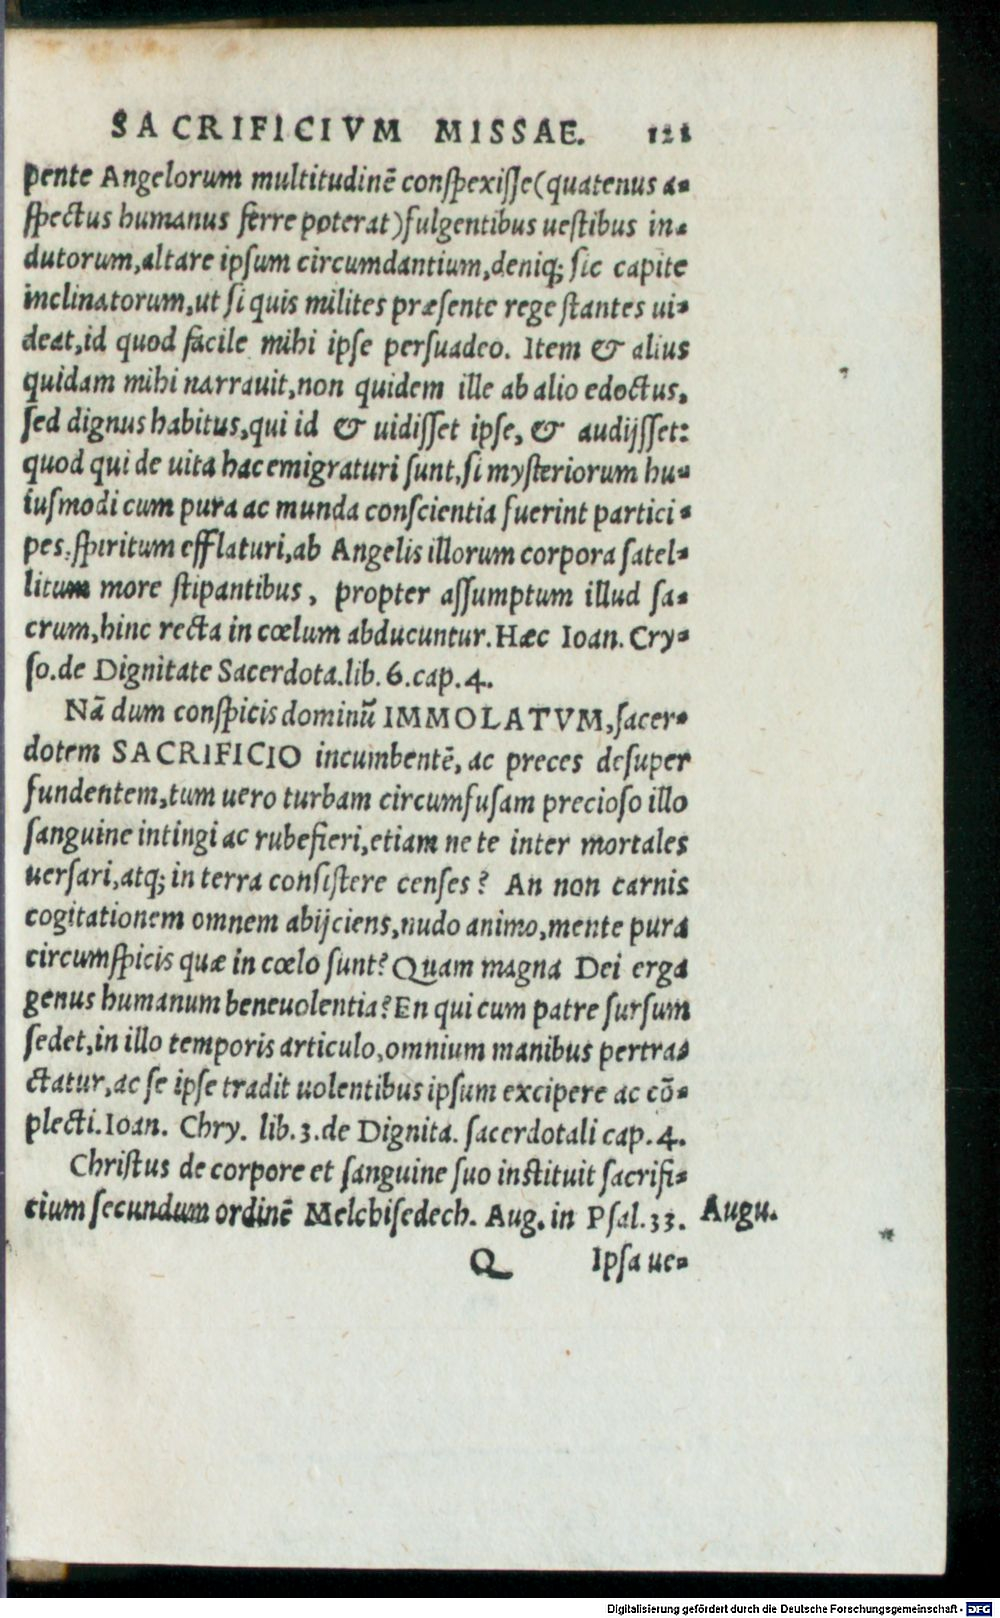 SACRIFICIVM MISSAE. 121
pente Angelorum multitudinē conſpexiſſe(quatenus a-
ſpectus humanus ferre poterat)fulgentibus ueſtibus in-
dutorum,altare ipſum circumdantium,deniq; ſic capite
inclinatorum,ut ſi quis milites præſente rege ſtantes ui-
deat,id quod facile mihi ipſe perſuadeo. Item & alius
quidam mihi narrauit,non quidem ille ab alio edoctus,
ſed dignus habitus,qui id & uidiſſet ipſe, & audijſſet:
quod qui de uita hac emigraturi ſunt,ſi myſteriorum hu-
iuſmodi cum pura ac munda conſcientia fuerint partici-
pes,ſpiritum efflaturi,ab Angelis illorum corpora ſatel-
litum more ſtipantibus, propter aſſumptum illud ſa-
crum,hinc recta in cœlum abducuntur.Hæc Ioan. Cry-
ſo.de Dignitate Sacerdota.lib.6.cap.4.
Nā dum conſpicis dominū IMMOLATVM,ſacer-
dotem SACRIFICIO incumbentē, ac preces deſuper
fundentem,tum uero turbam circumfuſam precioſo illo
ſanguine intingi ac rubefieri,etiam ne te inter mortales
uerſari,atq; in terra conſiſtere cenſes? An non carnis
cogitationem omnem abijciens,nudo animo,mente pura
circumſpicis quæ in cœlo ſunt?Quam magna Dei erga
genus humanum beneuolentia?En qui cum patre ſurſum
ſedet,in illo temporis articulo,omnium manibus pertra-
ctatur,ac ſe ipſe tradit uolentibus ipſum excipere ac cō-
plecti.Ioan. Chry. lib.3.de Dignita. ſacerdotali cap.4.
Chriſtus de corpore et ſanguine ſuo inſtituit ſacrifi-
cium ſecundum ordinē Melchiſedech. Aug. in Pſal.33. Augu.
Q Ipſa ue-
Digitalisierung gefördert durch die Deutsche Forschungsgemeinschaft - DFG